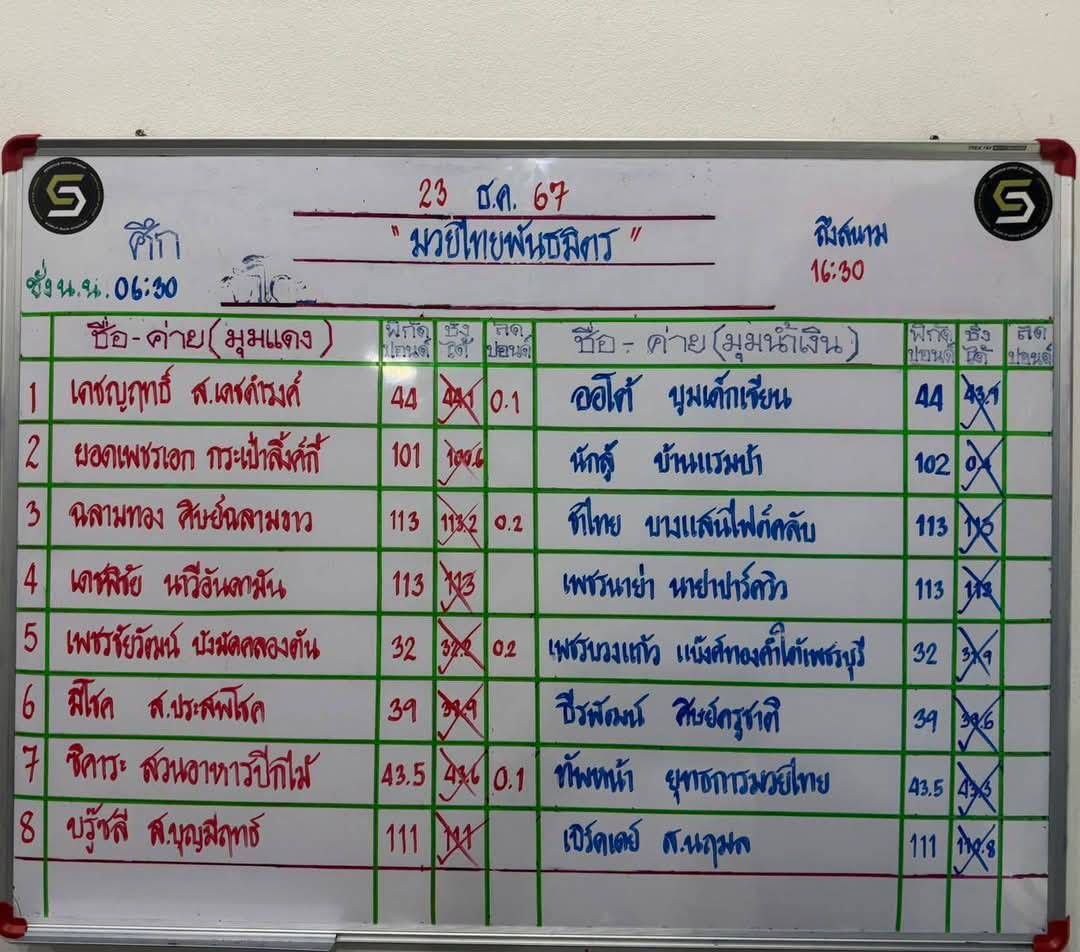 23 ธ.ค. 67
ศึก "มวยไทยพันธมิตร" ถึงสนาม
ชั่ง น.น. 06:30 16:30
ชื่อ-ค่าย(มุมแดง) พิกัดปอนด์ ชั่งได้ ลดปอนด์ ชื่อ-ค่าย(มุมน้ำเงิน) พิกัดปอนด์ ชั่งได้ ลดปอนด์
1 เดชญฤทธิ์ ส.เดชดำรงค์ 44 44.1 0.1 ออโต้ บูมเด็กเซียน 44 43.9
2 ยอดเพชรเอก กระเป๋าลิ้งค์กี้ 101 100.6 นักสู้ บ้านแรมป้า 102
3 ฉลามทอง ศิษย์ฉลามขาว 113 113.2 0.2 ชาไทย บางแสนไฟต์คลับ 113 113
4 เดชพิชัย นาวีอันดามัน 113 113 เพชรนาย่า นาย่าปาร์ควิว 113
5 เพชรชัยวัฒน์ บังมัดคลองตัน 32 32.2 0.2 เพชรบวงแก้ว แบ๊งค์ทองคำใต้เพชรบุรี 32 31.9
6 มีโชค ส.ประสพโชค 39 ธีรพัฒน์ ศิษย์ครูชาติ 39 38.6
7 ชิคาระ สวนอาหารปีกไม้ 43.5 43.6 0.1 ทัพหน้า ยุทธการมวยไทย 43.5 43.3
8 บรู๊ซลี ส.บุญมีฤทธ์ 111 111 เบิร์ดเดย์ ส.นฤมล 111 110.8